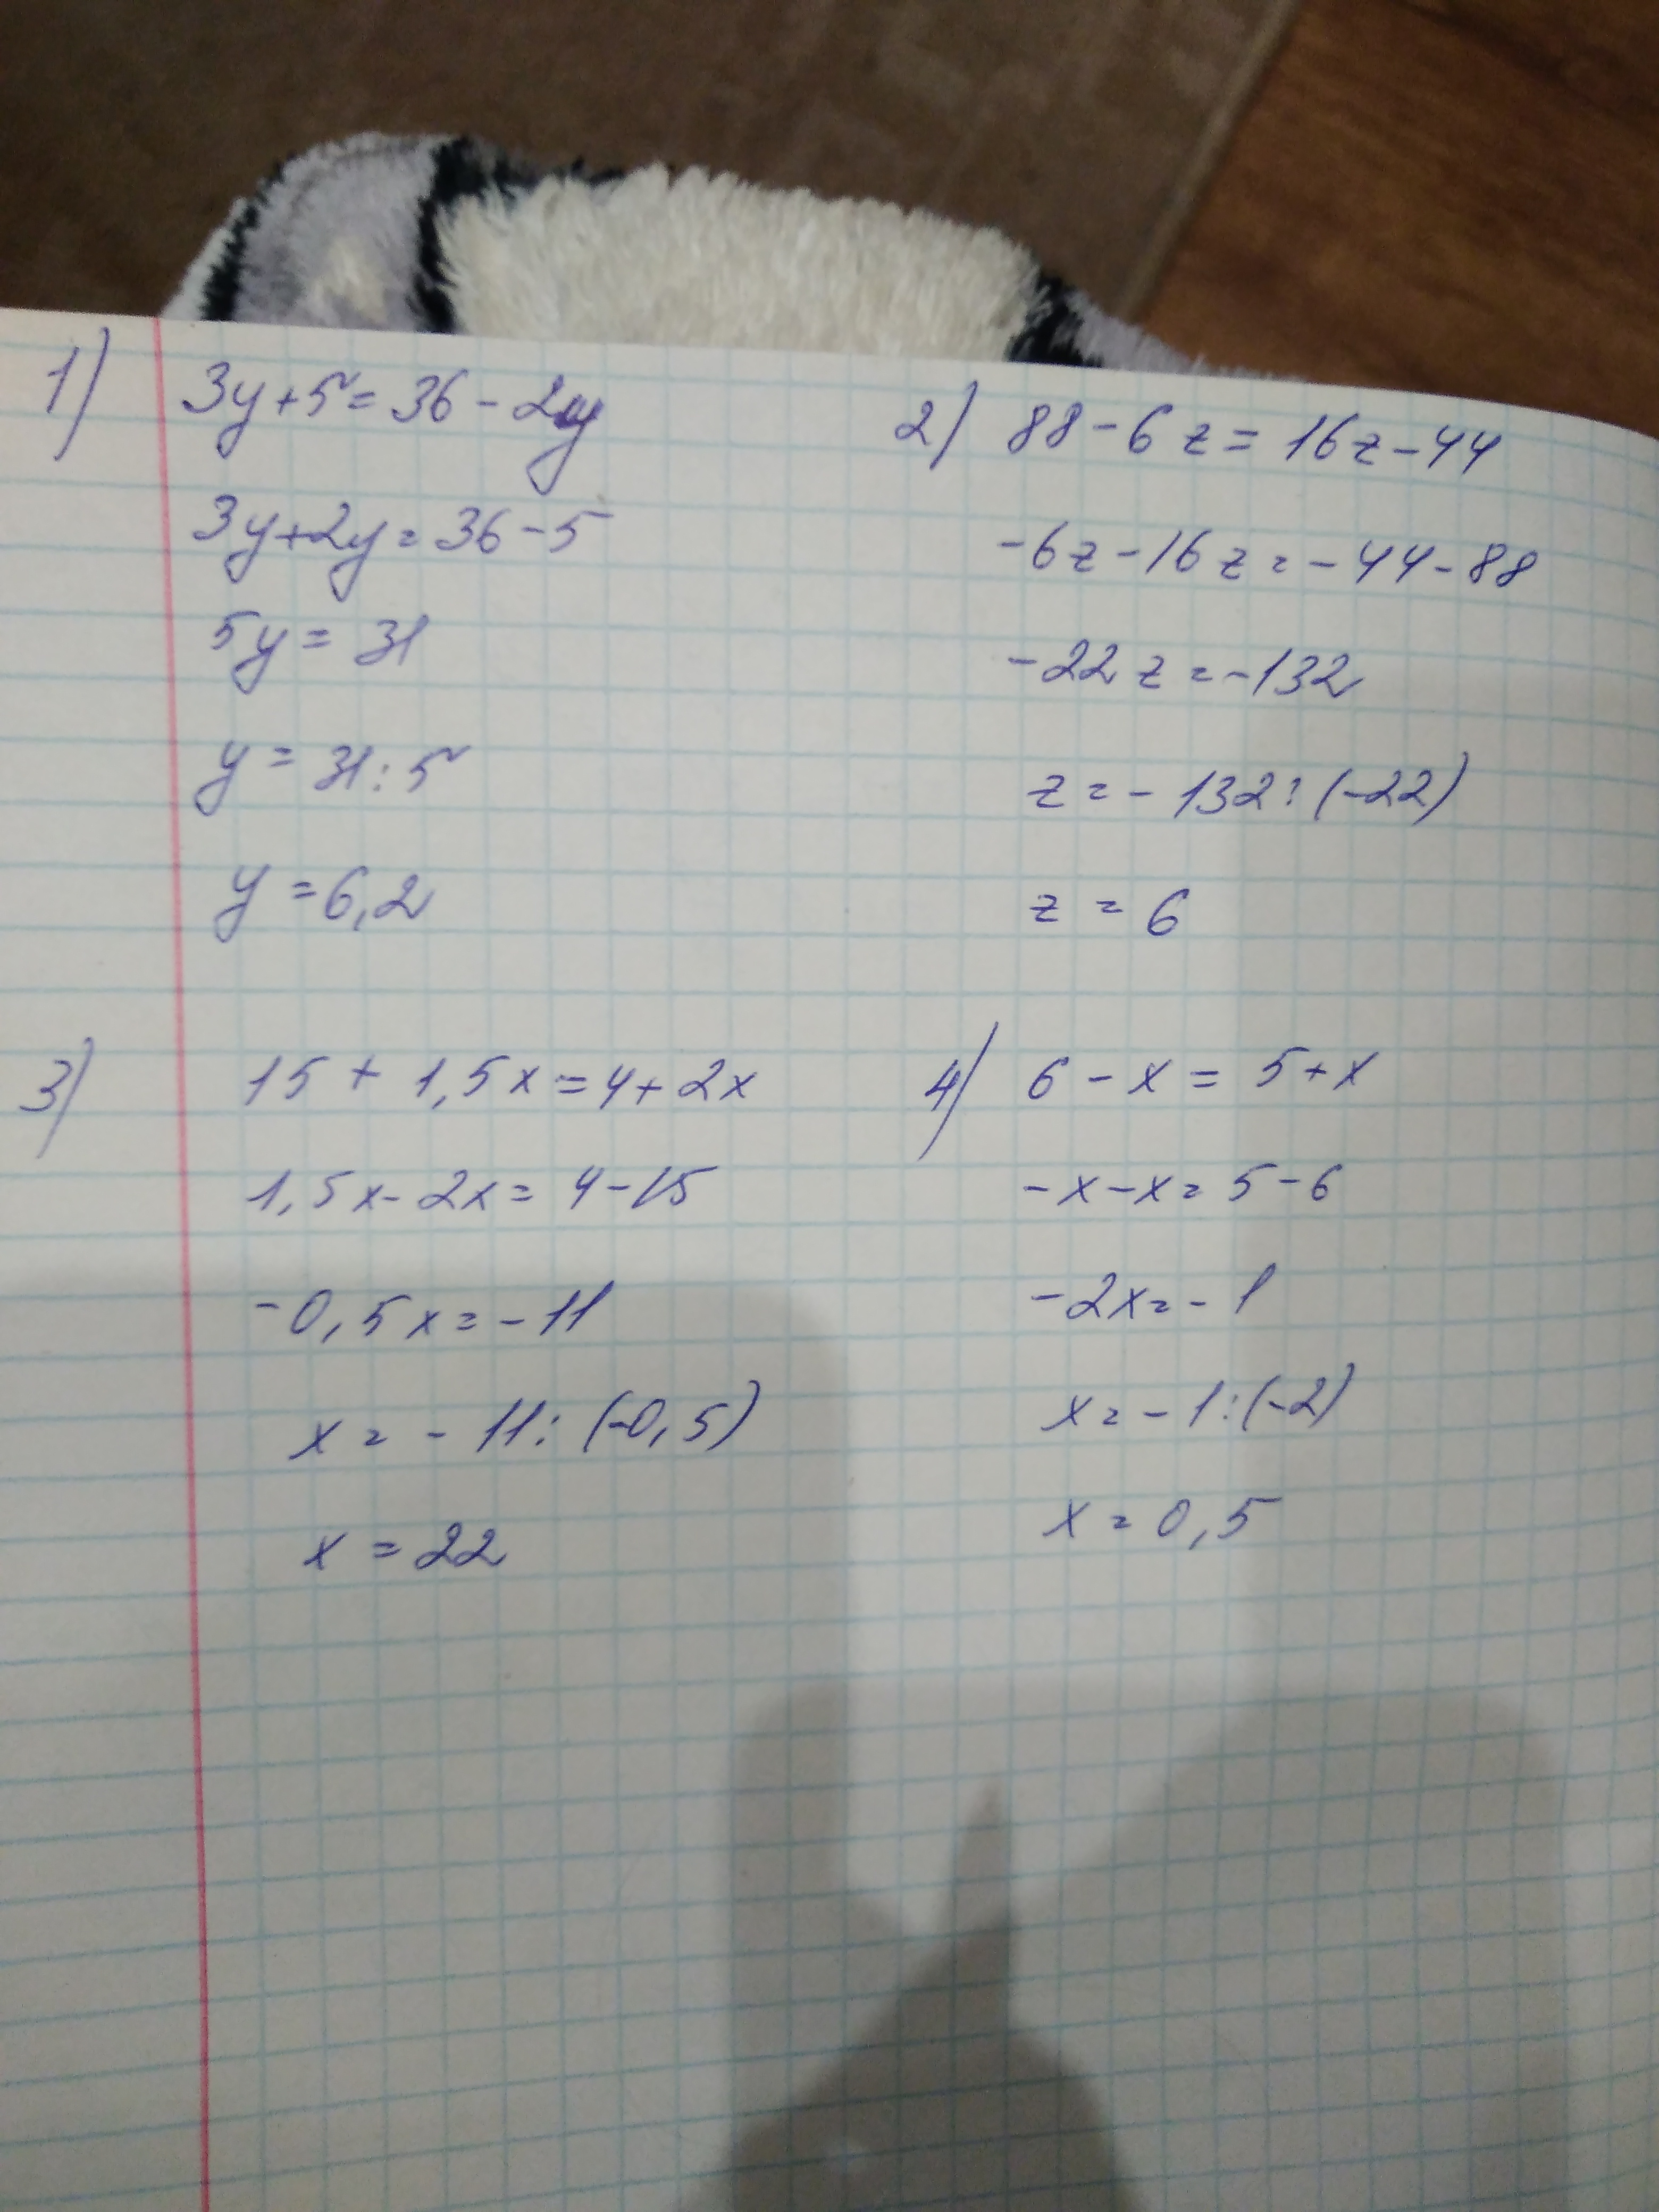 1) 3y+5=36-2y
3y+2y=36-5
5y=31
y=31:5
y=6,2
2) 88-6z=16z-44
-6z-16z=-44-88
-22z=-132
z=-132:(-22)
z=6
3) 15+1,5x=4+2x
1,5x-2x=4-15
-0,5x=-11
x=-11:(-0,5)
x=22
4) 6-x=5+x
-x-x=5-6
-2x=-1
x=-1:(-2)
x=0,5